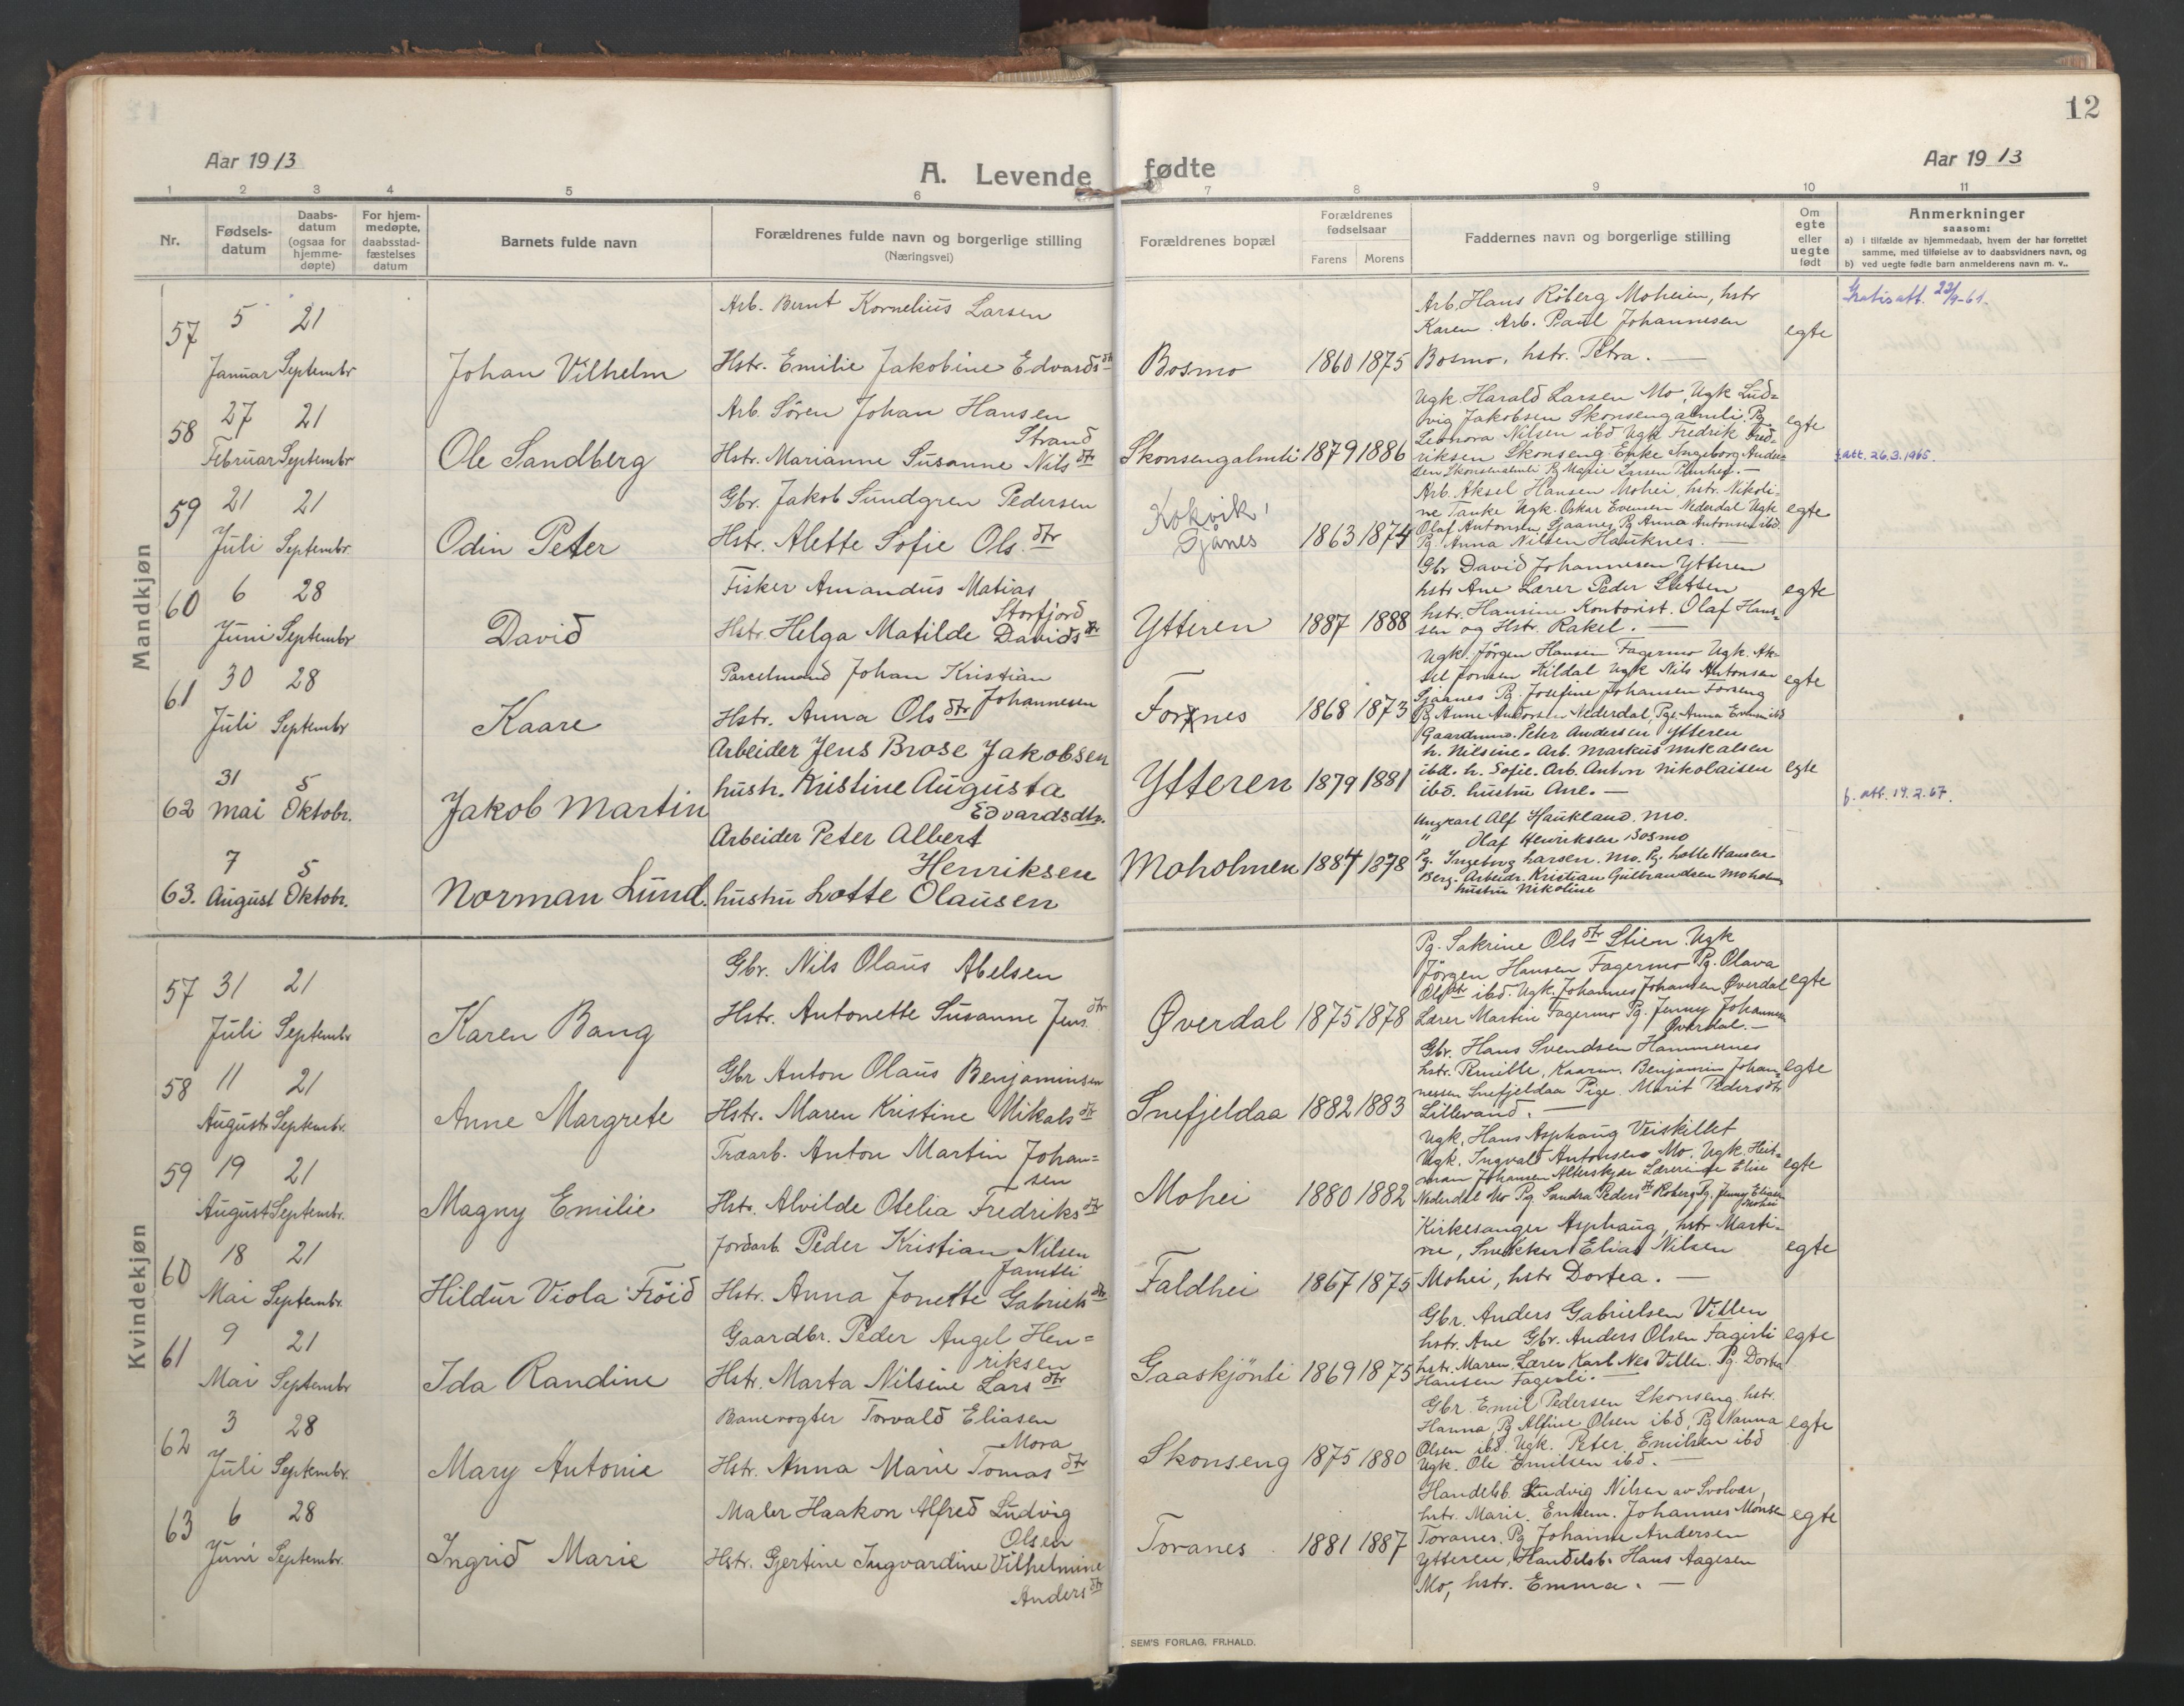 12
Aar 1913
A. Levende fødte
Aar 1913
1 2 3 4 5 6 7 8 9 10 11
Nr.
Fødsels-datum
Daabs-datum (ogsaa for hjemme-døpte)
For hjem-medøpte, daabsstad-fæstelses datum
Barnets fulde navn
Forældrenes fulde navn og borgerlige stilling
(Næringsvei)
Forældrenes bopæl
Forældrenes fødselsaar
Farens Morens
Faddernes navn og borgerlige stilling
Om egte eller uegte født
Anmerkninger
saasom:
a) i tilfælde av hjemmedaab, hvem der har forrettet
samme, med tilføielse av to daabsvidners navn, og
b) ved uegte fødte barn anmelderens navn m. v..
Mandkjøn
57
5 Januar
21 Septembr
Johan Vilhelm
Arb. Bernt Kornelius Larsen
Hstr. Emilie Jakobine Edvardsdtr
Bosmo
1860 1875
Arb. Hans Röberg Moheien, hstr
Karen. Arb. Paul Johannesen
Bosmo, hstr. Petra. —
egte
Gratisatt. 22/9-61.
58
27 Februar
21 Septembr
Ole Sandberg
Arb. Sören Johan Hansen
Strand
Hstr. Marianne Susanne Nilsdtr
Skonsengalmli
1879 1886
Ugk. Harald Larsen Mo, Ugk Lud-
vig Jakobsen Skonsengalmli. Pg.
Leonora Nilsen ibd Ugk Fredrik Fred-
riksen Skonseng Enke IngeborgAnder-
sen Skonsengalmli Pg Marie Larsen
egte
f.att. 26.3.1965.
59
21 Juli
21 Septembr
Odin Peter
Gbr. Jakob Sundgren Pedersen
Hstr. Alette Sofie Olsdtr
Kokvik, Sjånes
1863 1874
Arb. Aksel Hansen Mohei, hstr. Nikoli-
ne Tanke Ugk. Oskar Evensen Nederdal Ugk
Olaf Antonsen Sjaanes, Pg Anna Antonsen ibd.
Pg. Anna Nilsen Hauknes. —
egte
60
6 Juni
28 Septembr
David
Fisker Amandus Matias
Storfjord
Hstr. Helga Matilde Davidsdtr
Ytteren
1887 1888
Gbr David Johannesen Ytteren
hstr Ane Lærer Peder Sletten
hstr. Hansine Kontorist. Olaf Han-
sen og Hstr. Rakel. —
egte
61
30 Juli
28 Septembr
Kaare
Parcelmand Johan Kristian
Johannesen
Hstr. Anna Olsdtr
Forsnes
1868 1873
Ugk. Jörgen Hansen Fagermo Ugk. Ak-
sel Jonsen Kildal Ugk Nils Antonsen
Sjaanes Pg. Josefine Johansen Forseng
Pg Anne Andorsen Nederdal, Pge Anna Evensen ibd
egte
62
31 Mai
5 Oktobr.
Jakob Martin
Arbeider Jens Brose Jakobsen
hustr. Kristine Augusta
Edvardsdtr.
Ytteren
1879 1881
Gaardmd. Peter Andersen Ytteren
h. Nilsine. Arb. Markus Mikalsen
ibd. h. Sofie. Arb. Anton Nikolaisen
ibd. hustru Ane. —
egte
f. att. 19.2.67.
63.
7 August
5 Oktobr.
Norman Lund.
Arbeider Peter Albert
Henriksen
hustru Lotte Olausen
Moholmen
1884 1878
Ungkarl Alf Haukland. Mo.
" Olaf Henriksen Bosmo
Pg. Ingeborg Larsen. Mo. Pg. Lotte Hansen
Berg. Arbeidr. Kristian Gulbrandsen Moholm
hustru Nikoline
Kvindekjøn
57
31 Juli
21 Septembr
Karen Bang
Gbr. Nils Olaus Abelsen
Hstr. Antonette Susanne Jensdtr
Øverdal
1875 1878
Pg. Sakrine Olsdtr Stien. Ugk
Jörgen Hansen Fagermo Pg. Olava
Olsdtr ibd. Ugk. Johannes Johansen Øverdal
Lærer Martin Fagermo Pg. Jenny Johannesen
Øverdal. —
egte
58
11 August
21 Septembr.
Anne Margrete
Gbr Anton Olaus Benjaminsen
Hstr. Maren Kristine Mikalsdtr
Snefjeldaa
1882 1883
Gbr. Hans Svendsen Hammernes
hstr. Pernille, Kaarm. Benjamin Johan-
nessen Snefjeldaa Pige. Marit Pedersdtr
Lillevand. —
egte
59
19 August
21 Septembr.
Magny Emilie
Træarb. Anton Martin Johan=
sen
Hstr. Alvilde Otelia Fredriksdtr
Mohei
1880 1882
Ugk. Hans Asphaug Veiskillet
Ugk. Ingvald Antonsen Mo. Ugk. Heit-
man Johansen Alterskjær Lærerinde Elise
Nederdal Mo Pg Sandra Pedersdtr Röberg Pg. Jenny Eliasen
Mohei
egte
60
18 Mai
21 Septembr.
Hildur Viola Fröid
Jordarb. Peder Kristian Nilsen
Jamtli
Hstr. Anna Jonette Gabrielsdtr
Faldhei
1867 1875
Kirkesanger Asphaug, hstr Marti-
ne, Snekker Elias Nilsen
Mohei, hstr Dortea. —
egte
61
9 Mai
21 Septembr
Ida Randine
Gaardbr. Peder Angel Hen=
riksen
Hstr. Marta Nilsine Larsdtr
Gaaskjönli
1869 1875
Gbr. Anders Gabrielsen Villen
hstr. Ane Gbr. Anders Olsen Fagerli
hstr. Maren, Lærer Karl Nes Villen. Pg. Dortea
Hansen Fagerli. —
egte
62
3 Juli
28 Septembr.
Mary Antonie
Banevogter Torvald Eliasen
Mora
Hstr. Anna Marie Tomasdtr
Skonseng
1875 1880
Gbr. Emil Pedersen Skonseng, hstr.
Hanna, Pg Alfine Olsen ibd, Pg Nanna
Olsen ibd. Ugk. Peter Emilsen ibd
Ugk. Ole Emilsen ibd. —
egte
63
6 Juni
28 Septembr.
Ingrid Marie
Maler Haakon Alfred Ludvig
Olsen
Hstr. Gjertine Ingvardine Vilhelmine
Andersdtr
Toranes
1881 1887
Handelsb. Ludvig Nilsen av Svolvær,
hstr. Marie. Enkem. Johannes Monsen
Toranes. Pg Johanne Andersen
Ytteren, Handelsb. Hans Aagesen
Mo, hstr. Emma. —
egte
SEM'S FORLAG, FR.HALD.